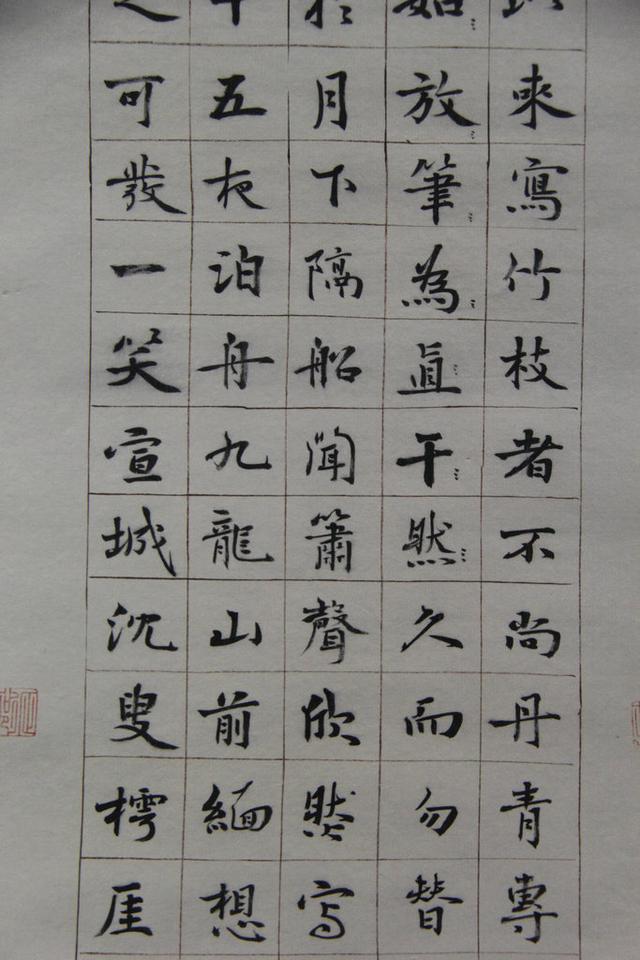 來寫竹枝者不尚丹青專
如放筆為直干然久而勿替
於月下隔船聞簫聲欣然写
十五夜泊舟九龍山前緬想
之可發一笑宣城沈叟樗厓